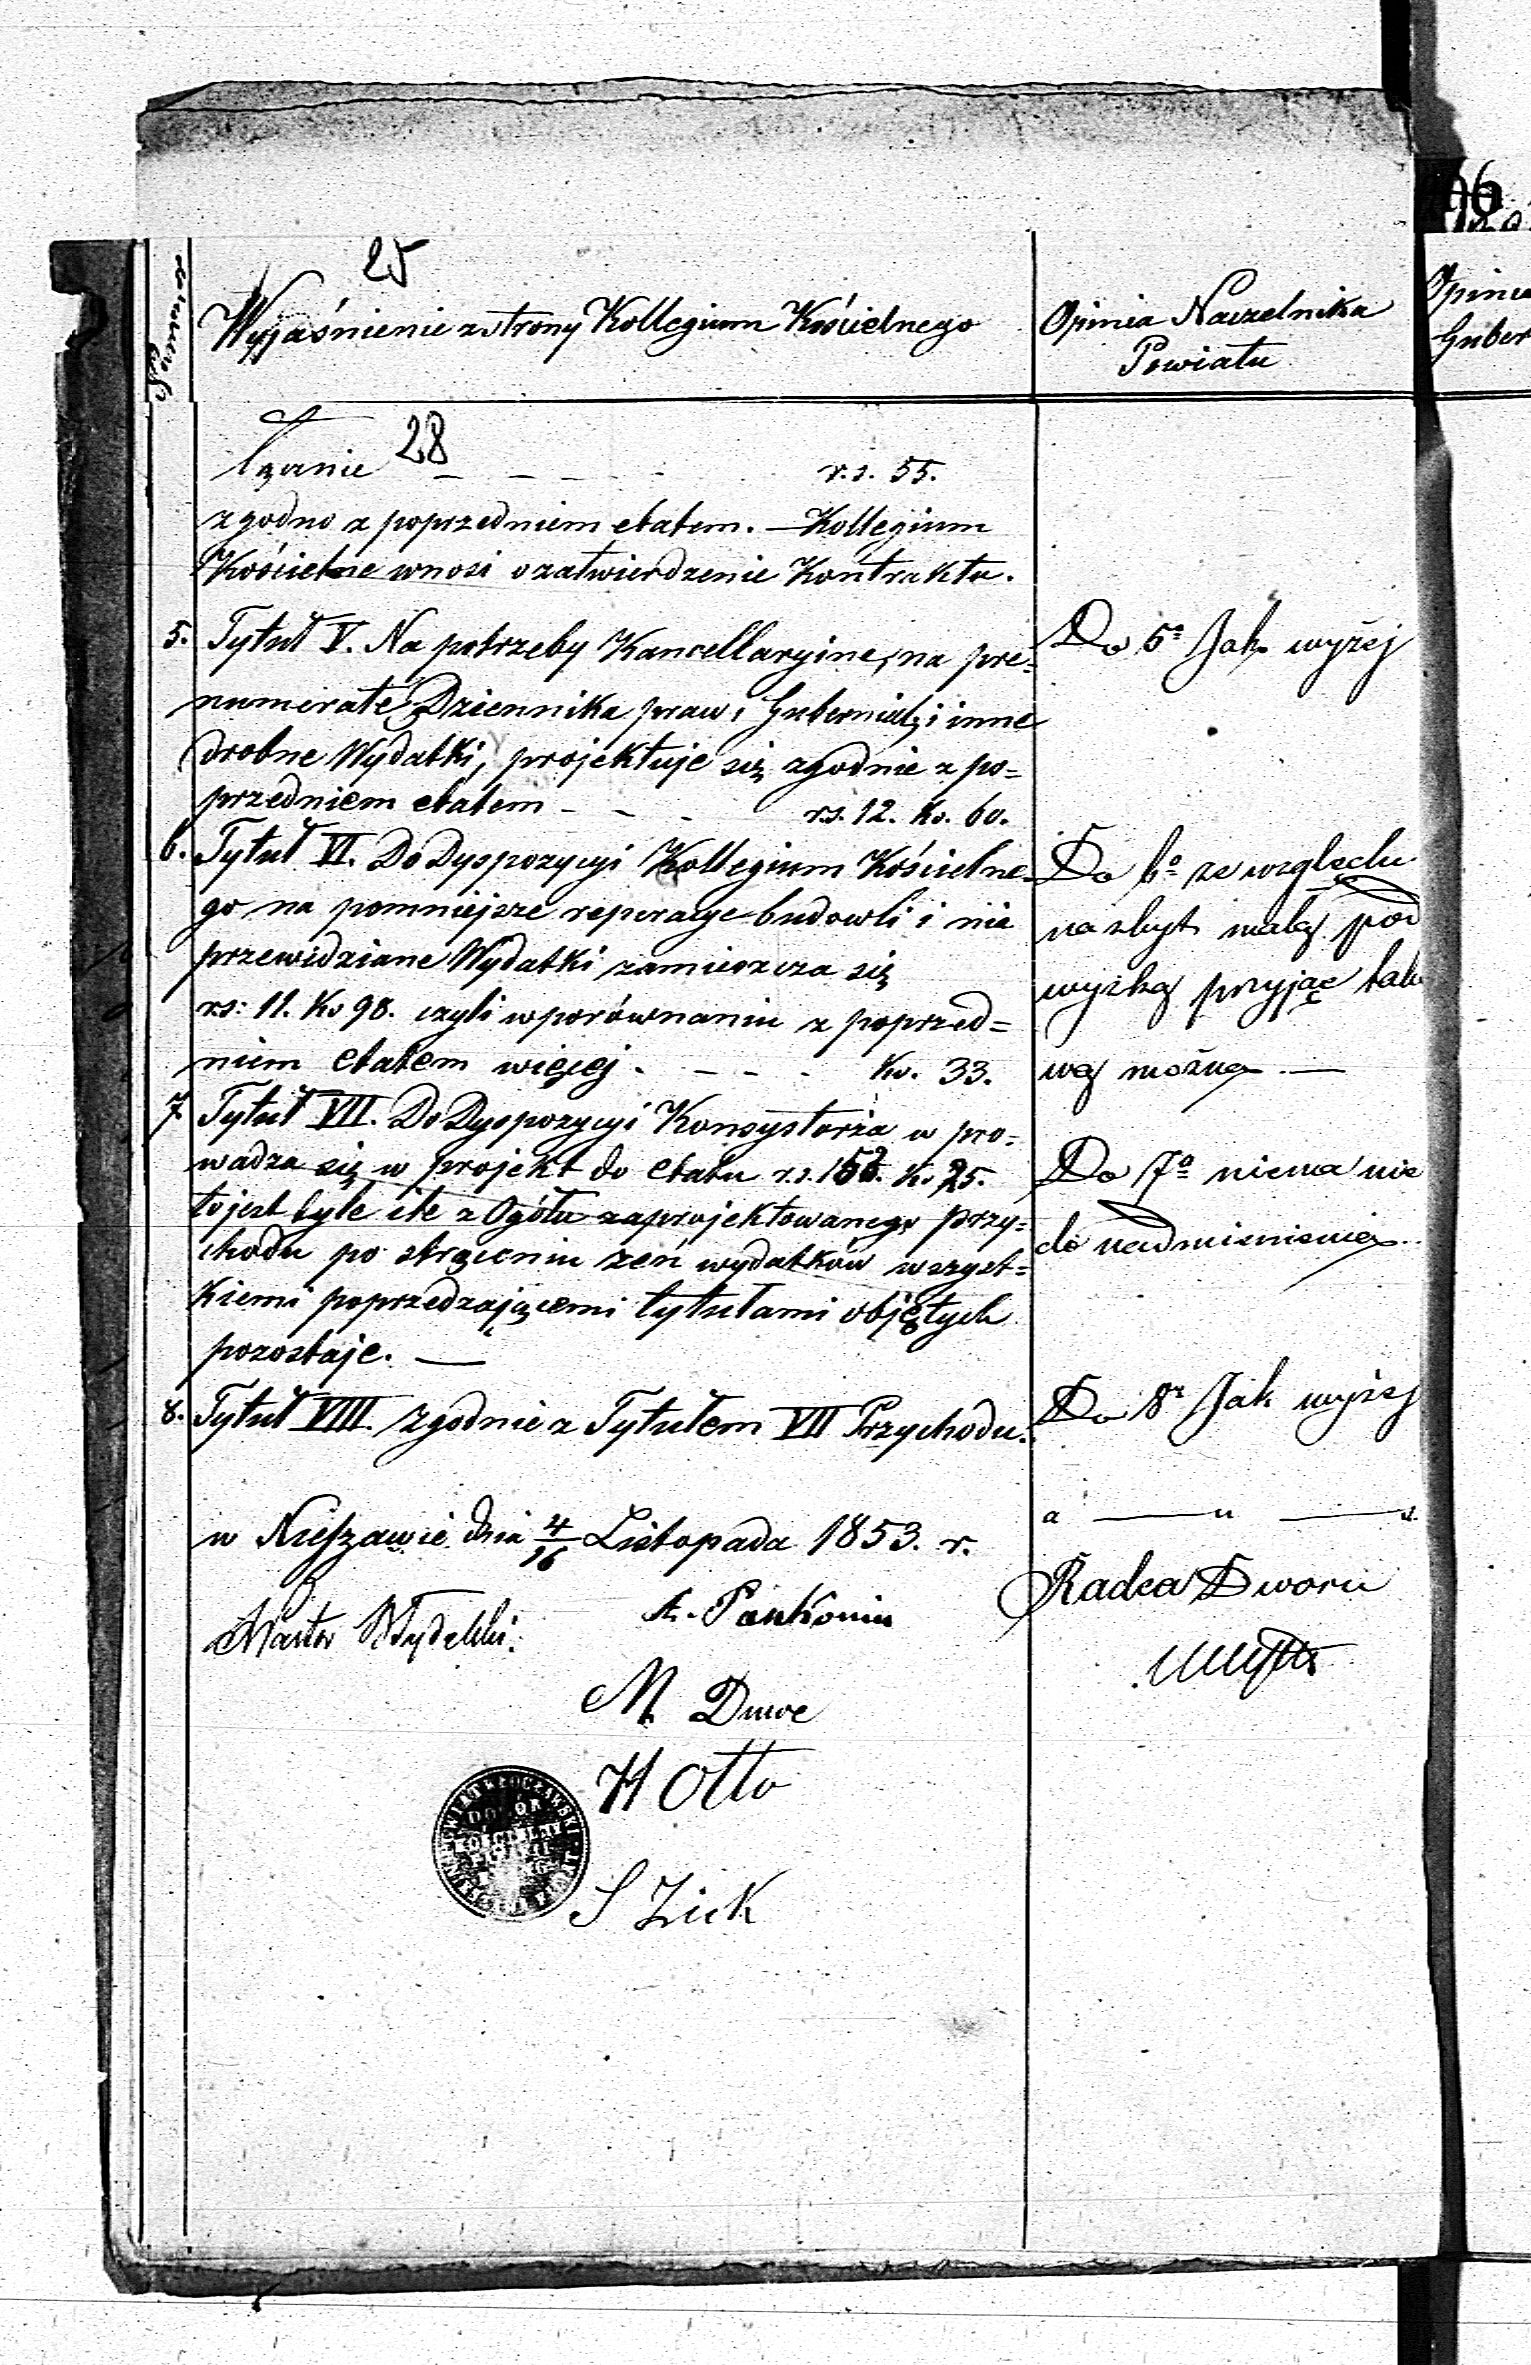 25
Wyjaśnienie z strony Kollegium Kościelnego
Opinia Naczelnika
Powiatu
Opinia
Guber
28
Łącznie - - - - r.s. 55.
zgodno z poprzedniem etatem. — Kollegium
Kościelne wnosi o zatwierdzenie Kontraktu.
5. Tytuł V. Na potrzeby Kancellaryine, na pre=
numeratę Dziennika praw, Gubernial; i inne
drobne Wydatki, projektuje się zgodnie z po=
przedniem etatem - - - rs. 12. ko. 60.
Do 5º Jak wyżej
6. Tytuł VI. Do Dyspozycyi Kollegium Kościelne=
go na pomniejsze reperacye budowli i nie
przewidziane Wydatki zamieszcza się
rs: 11. Ko 98. czyli w porównaniu z poprzed=
niem etatem więcej - - - - Ko. 33.
Do 6º ze względu
na zbyt małą pod
wyżkę przyjąć tako
wą można —
7 Tytuł VII. Do Dyspozycyi Konsystorza w pro=
wadza się w projekt do etatu r.s. 152. Ko 25.
to jest tyle ile z Ogółu zaprojektowanego przy=
chodu po strąceniu zeń wydatków wszyst=
kiemi poprzedzającemi tytułami objętych
pozostaje. —
Do 7º niema nic
do nadmienienia
8. Tytuł VIII. zgodnie z Tytułem VII Przychodu.
Do 8º Jak wyżej
w Nieszawie dnia 4/16 Listopada 1853. r.
Radca Dworu
Pastor
A. Pankonin
M Duwe
H Otto
S Zick
DOZÓR